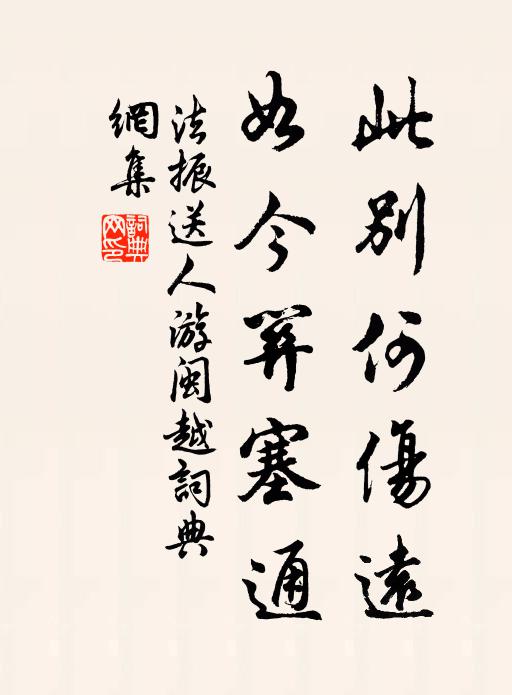 此別何傷遠
如今關塞通
法振送人游閩越詞典
網集
詞典
网印